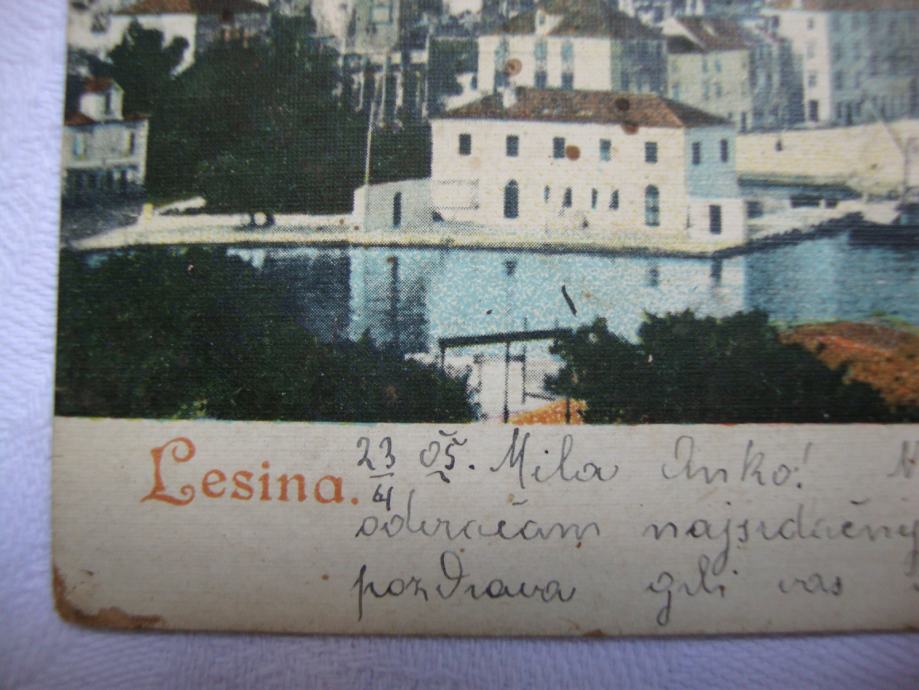 Lesina.
23/4 05. Mila Anko!
odvraćam najsrdačnij
pozdrava gdi vas